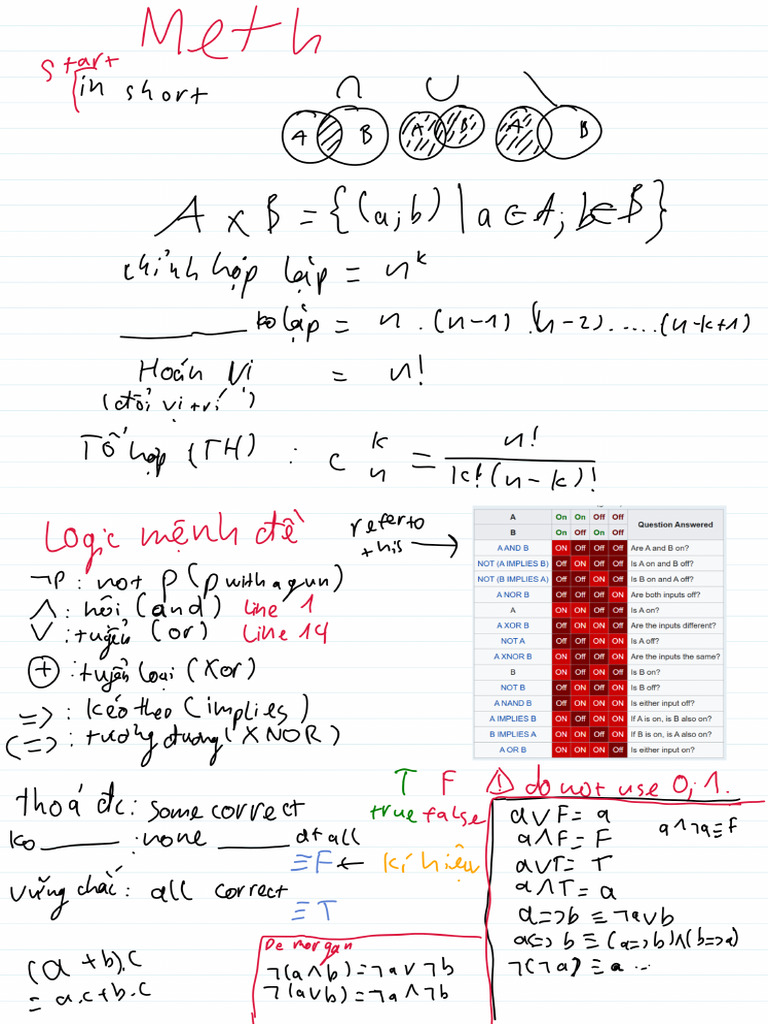 Meth
start
in short
∩ ∪ \
A B A B A B
A x B = {(a;b) | a ∈ A; b ∈ B}
chỉnh hợp lặp = n^k
________ ko lặp = n . (n-1) . (n-2) ..... (n-k+1)
Hoán vị = n!
(đổi vị trí)
Tổ hợp (TH) : C k n = n! / k!(n-k)!
Logic mệnh đề
refer to this →
¬P : not P (p with a gun)
∧ : hội (and) Line 1
∨ : tuyển (or) Line 14
⊕ : tuyển loại (Xor)
=> : kéo theo (implies)
<=> : tương đương (XNOR)
A On On Off Off Question Answered
B On Off On Off
A AND B ON Off Off Off Are A and B on?
NOT (A IMPLIES B) Off ON Off Off Is A on and B off?
NOT (B IMPLIES A) Off Off ON Off Is B on and A off?
A NOR B Off Off Off ON Are both inputs off?
A ON ON Off Off Is A on?
A XOR B Off ON ON Off Are the inputs different?
NOT A Off Off ON ON Is A off?
A XNOR B ON Off Off ON Are the inputs the same?
B ON Off ON Off Is B on?
NOT B Off ON Off ON Is B off?
A NAND B Off ON ON ON Is either input off?
A IMPLIES B ON Off ON ON If A is on, is B also on?
B IMPLIES A ON ON Off ON If B is on, is A also on?
A OR B ON ON ON Off Is either input on?
T F ⚠ do not use 0; 1.
true false
thoả đc : some correct
ko ______ : none ______ at all
≡F ← kí hiệu
vững chắc : all correct
≡ T
(a + b).c
= a.c + b.c
De morgan
¬(a ∧ b) = ¬a ∨ ¬b
¬(a ∨ b) = ¬a ∧ ¬b
a ∨ F = a
a ∧ ¬a ≡ F
a ∧ F = F
a ∨ T = T
a ∧ T = a
a => b ≡ ¬a ∨ b
a <=> b ≡ (a => b) ∧ (b => a)
¬(¬a) ≡ a ...